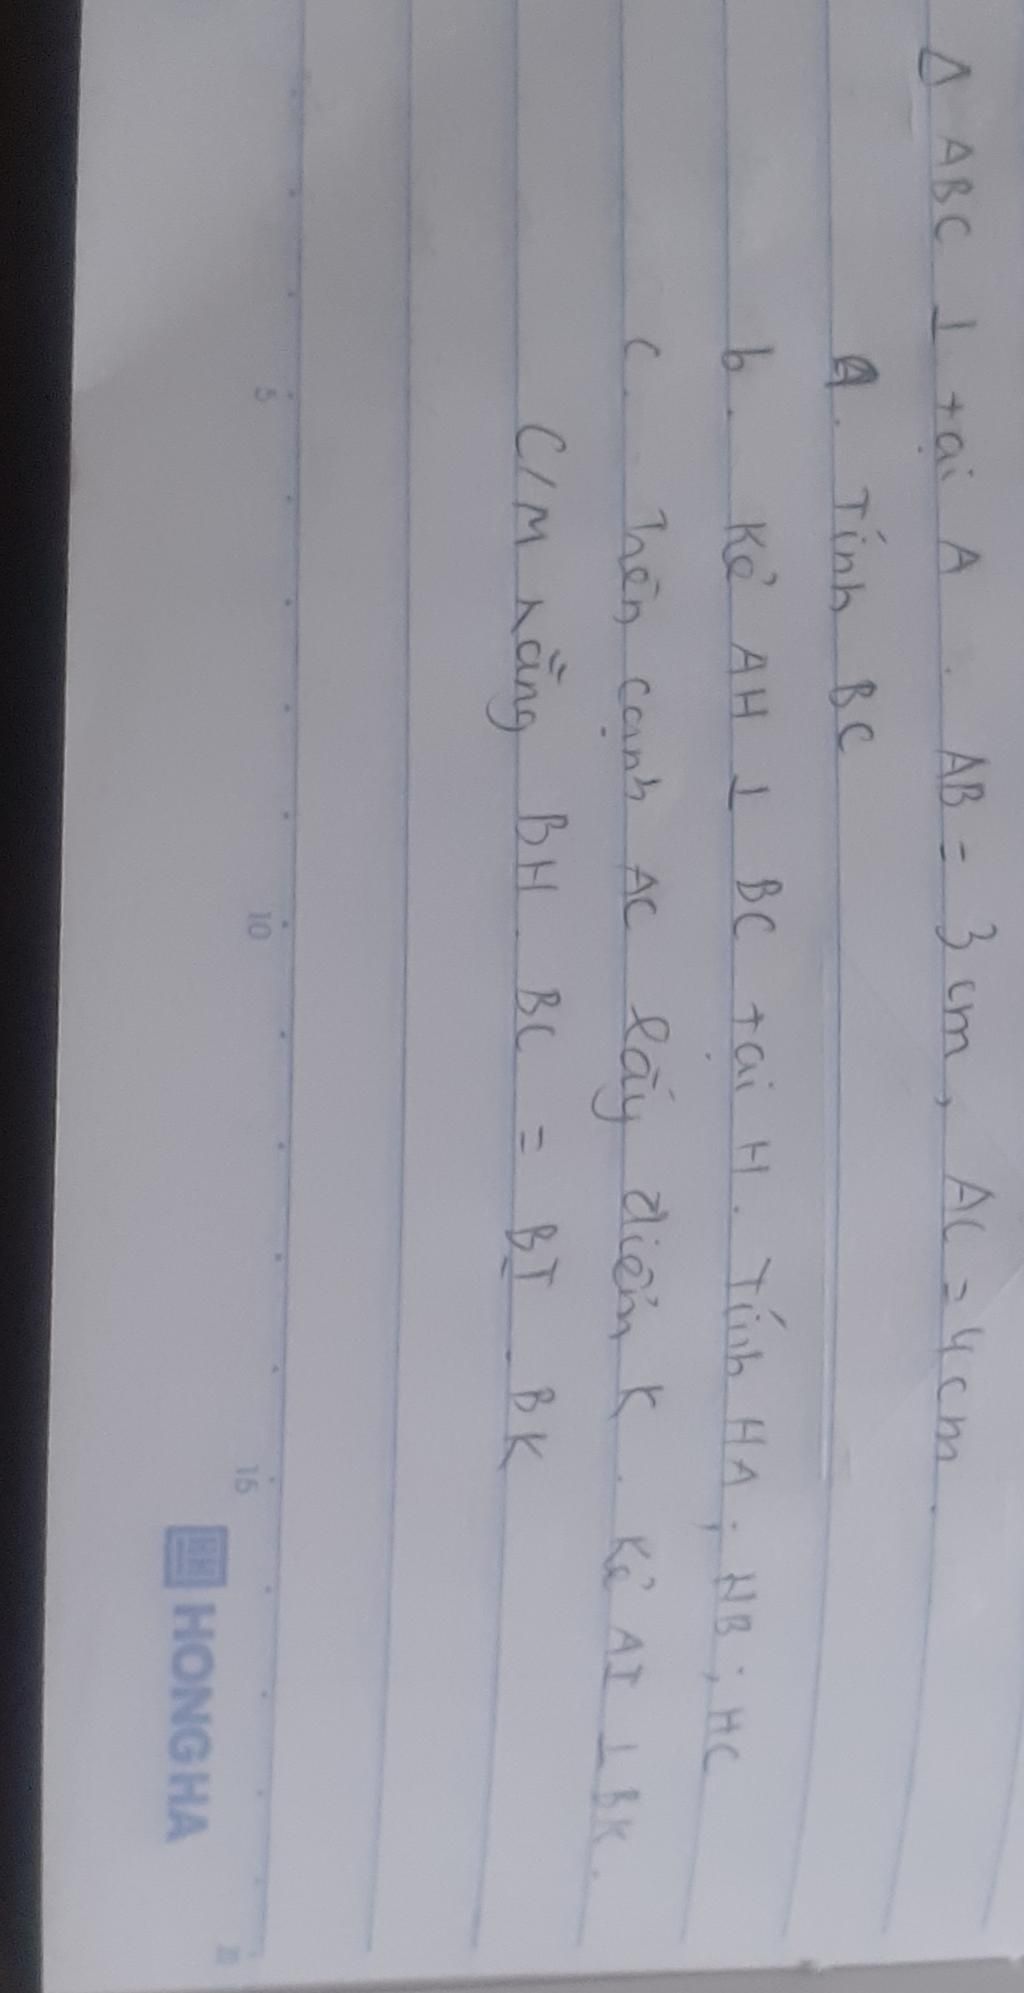 Δ ABC ⊥ tại A. AB = 3cm, AC = 4cm.
a. Tính BC
b. Kẻ AH ⊥ BC tại H. Tính HA; HB; HC
c. Trên cạnh AC lấy điểm K. Kẻ AI ⊥ BK.
C/M rằng BH. BC = BI. BK
5 10 15 20
HONG HA